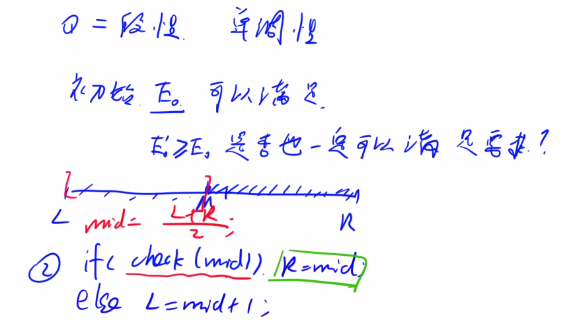 ① 二段性 单调性
初始 E₀ 可以满足.
E'≥E₀ 是否也一定可以满足需求?
L mid = (L+R)/2; R
② if( check(mid)) R=mid;
else L=mid+1;